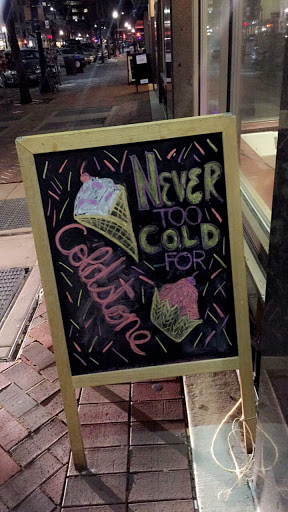 NEVER
TOO
COLD
FOR
Coldstone